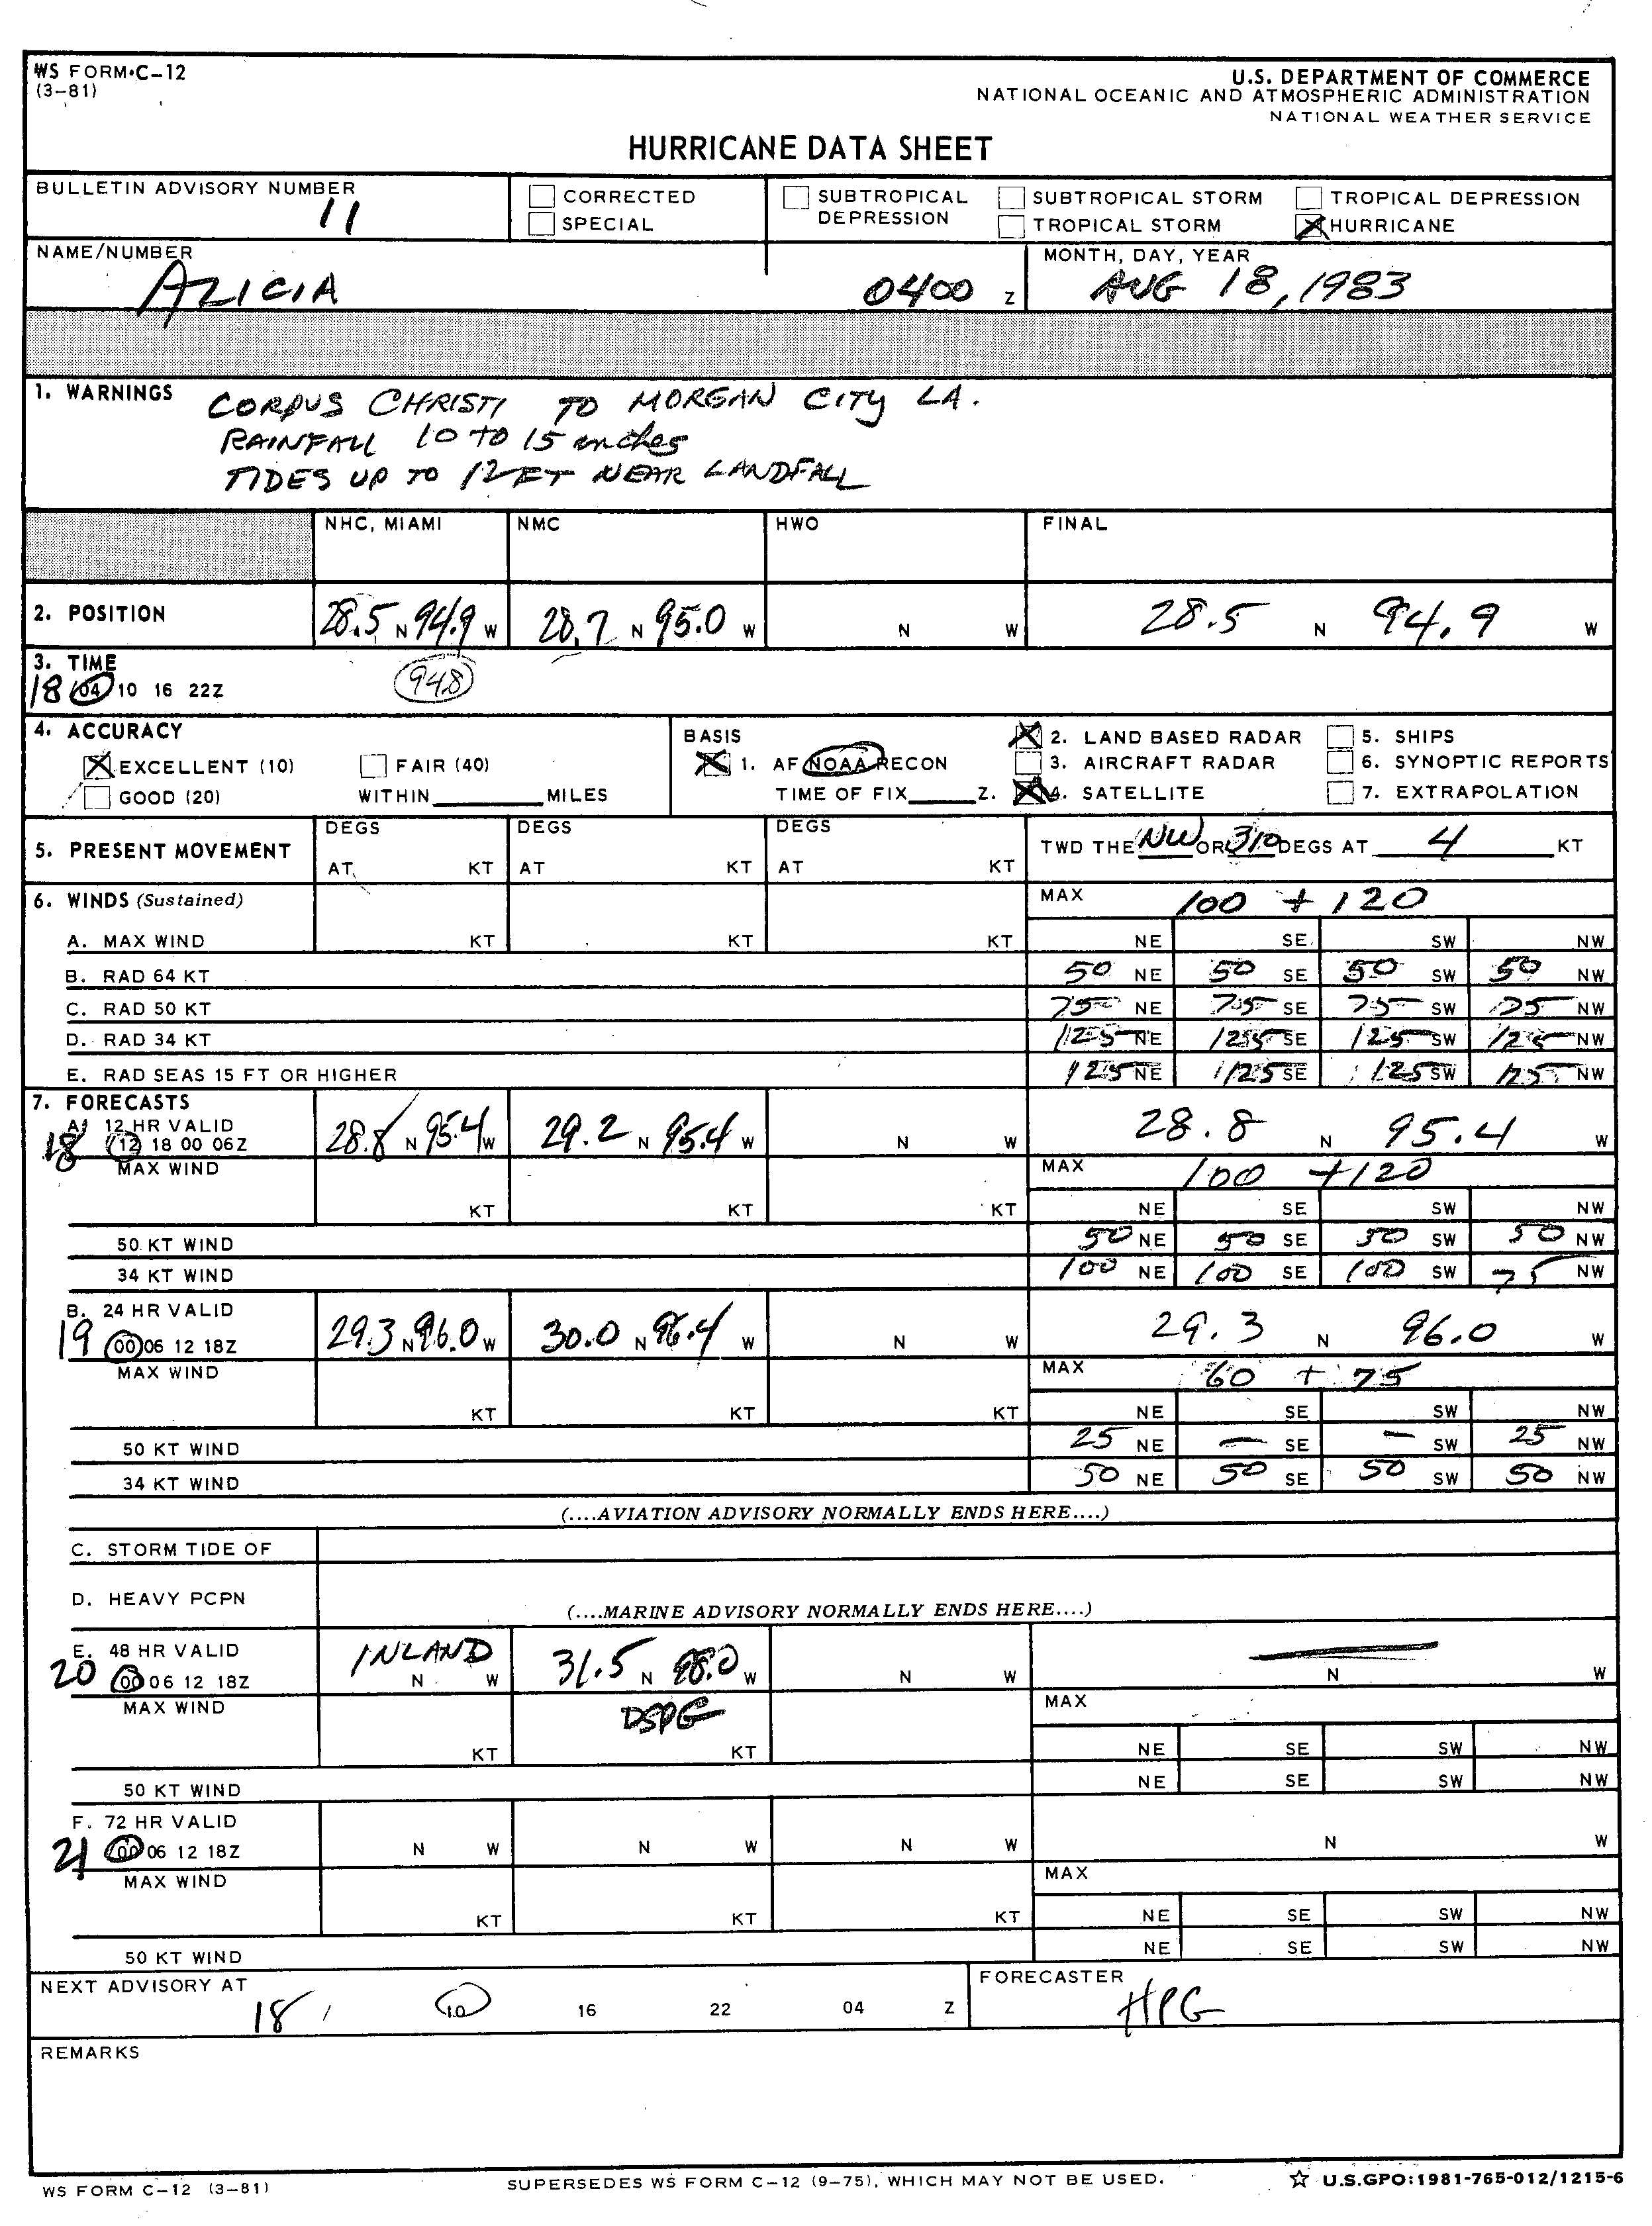 WS FORM C-12
(3-81)
U.S. DEPARTMENT OF COMMERCE
NATIONAL OCEANIC AND ATMOSPHERIC ADMINISTRATION
NATIONAL WEATHER SERVICE
HURRICANE DATA SHEET
BULLETIN ADVISORY NUMBER 11
CORRECTED
SPECIAL
SUBTROPICAL DEPRESSION
SUBTROPICAL STORM
TROPICAL STORM
TROPICAL DEPRESSION
HURRICANE
NAME/NUMBER
ALICIA
0400 Z
MONTH, DAY, YEAR
AUG 18, 1983
1. WARNINGS CORPUS CHRISTI TO MORGAN CITY LA.
RAINFALL 10 TO 15 inches
TIDES UP TO 12 FT NEAR LANDFALL
NHC, MIAMI NMC HWO FINAL
2. POSITION 28.5 N 94.9 W 28.7 N 95.0 W N W 28.5 N 94.9 W
3. TIME
18 04 10 16 22Z 948
4. ACCURACY
EXCELLENT (10) FAIR (40)
GOOD (20) WITHIN MILES
BASIS
1. AF NOAA RECON
TIME OF FIX Z.
2. LAND BASED RADAR
3. AIRCRAFT RADAR
4. SATELLITE
5. SHIPS
6. SYNOPTIC REPORTS
7. EXTRAPOLATION
5. PRESENT MOVEMENT
DEGS DEGS DEGS
AT KT AT KT AT KT
TWD THE NW OR 310 DEGS AT 4 KT
6. WINDS (Sustained) MAX 100 + 120
A. MAX WIND KT KT KT NE SE SW NW
B. RAD 64 KT 50 NE 50 SE 50 SW 50 NW
C. RAD 50 KT 75 NE 75 SE 75 SW 75 NW
D. RAD 34 KT 125 NE 125 SE 125 SW 125 NW
E. RAD SEAS 15 FT OR HIGHER 125 NE 125 SE 125 SW 125 NW
7. FORECASTS
A. 12 HR VALID
18 12 18 00 06Z 28.8 N 95.4 W 29.2 N 95.4 W N W 28.8 N 95.4 W
MAX WIND MAX 100 +120
KT KT KT NE SE SW NW
50 KT WIND 50 NE 50 SE 50 SW 50 NW
34 KT WIND 100 NE 100 SE 100 SW 75 NW
B. 24 HR VALID
19 00 06 12 18Z 29.3 N 96.0 W 30.0 N 96.4 W N W 29.3 N 96.0 W
MAX WIND MAX 60 + 75
KT KT KT NE SE SW NW
50 KT WIND 25 NE — SE — SW 25 NW
34 KT WIND 50 NE 50 SE 50 SW 50 NW
(....AVIATION ADVISORY NORMALLY ENDS HERE....)
C. STORM TIDE OF
D. HEAVY PCPN
(....MARINE ADVISORY NORMALLY ENDS HERE....)
E. 48 HR VALID INLAND
20 00 06 12 18Z N W 31.5 N 98.0 W N W N W
MAX WIND DSPG MAX
KT KT NE SE SW NW
50 KT WIND NE SE SW NW
F. 72 HR VALID
21 00 06 12 18Z N W N W N W N W
MAX WIND MAX
KT KT KT NE SE SW NW
50 KT WIND NE SE SW NW
NEXT ADVISORY AT
18 / 10 16 22 04 Z
FORECASTER
HPG
REMARKS
WS FORM C-12 (3-81)
SUPERSEDES WS FORM C-12 (9-75), WHICH MAY NOT BE USED.
☆ U.S.GPO:1981-765-012/1215-6